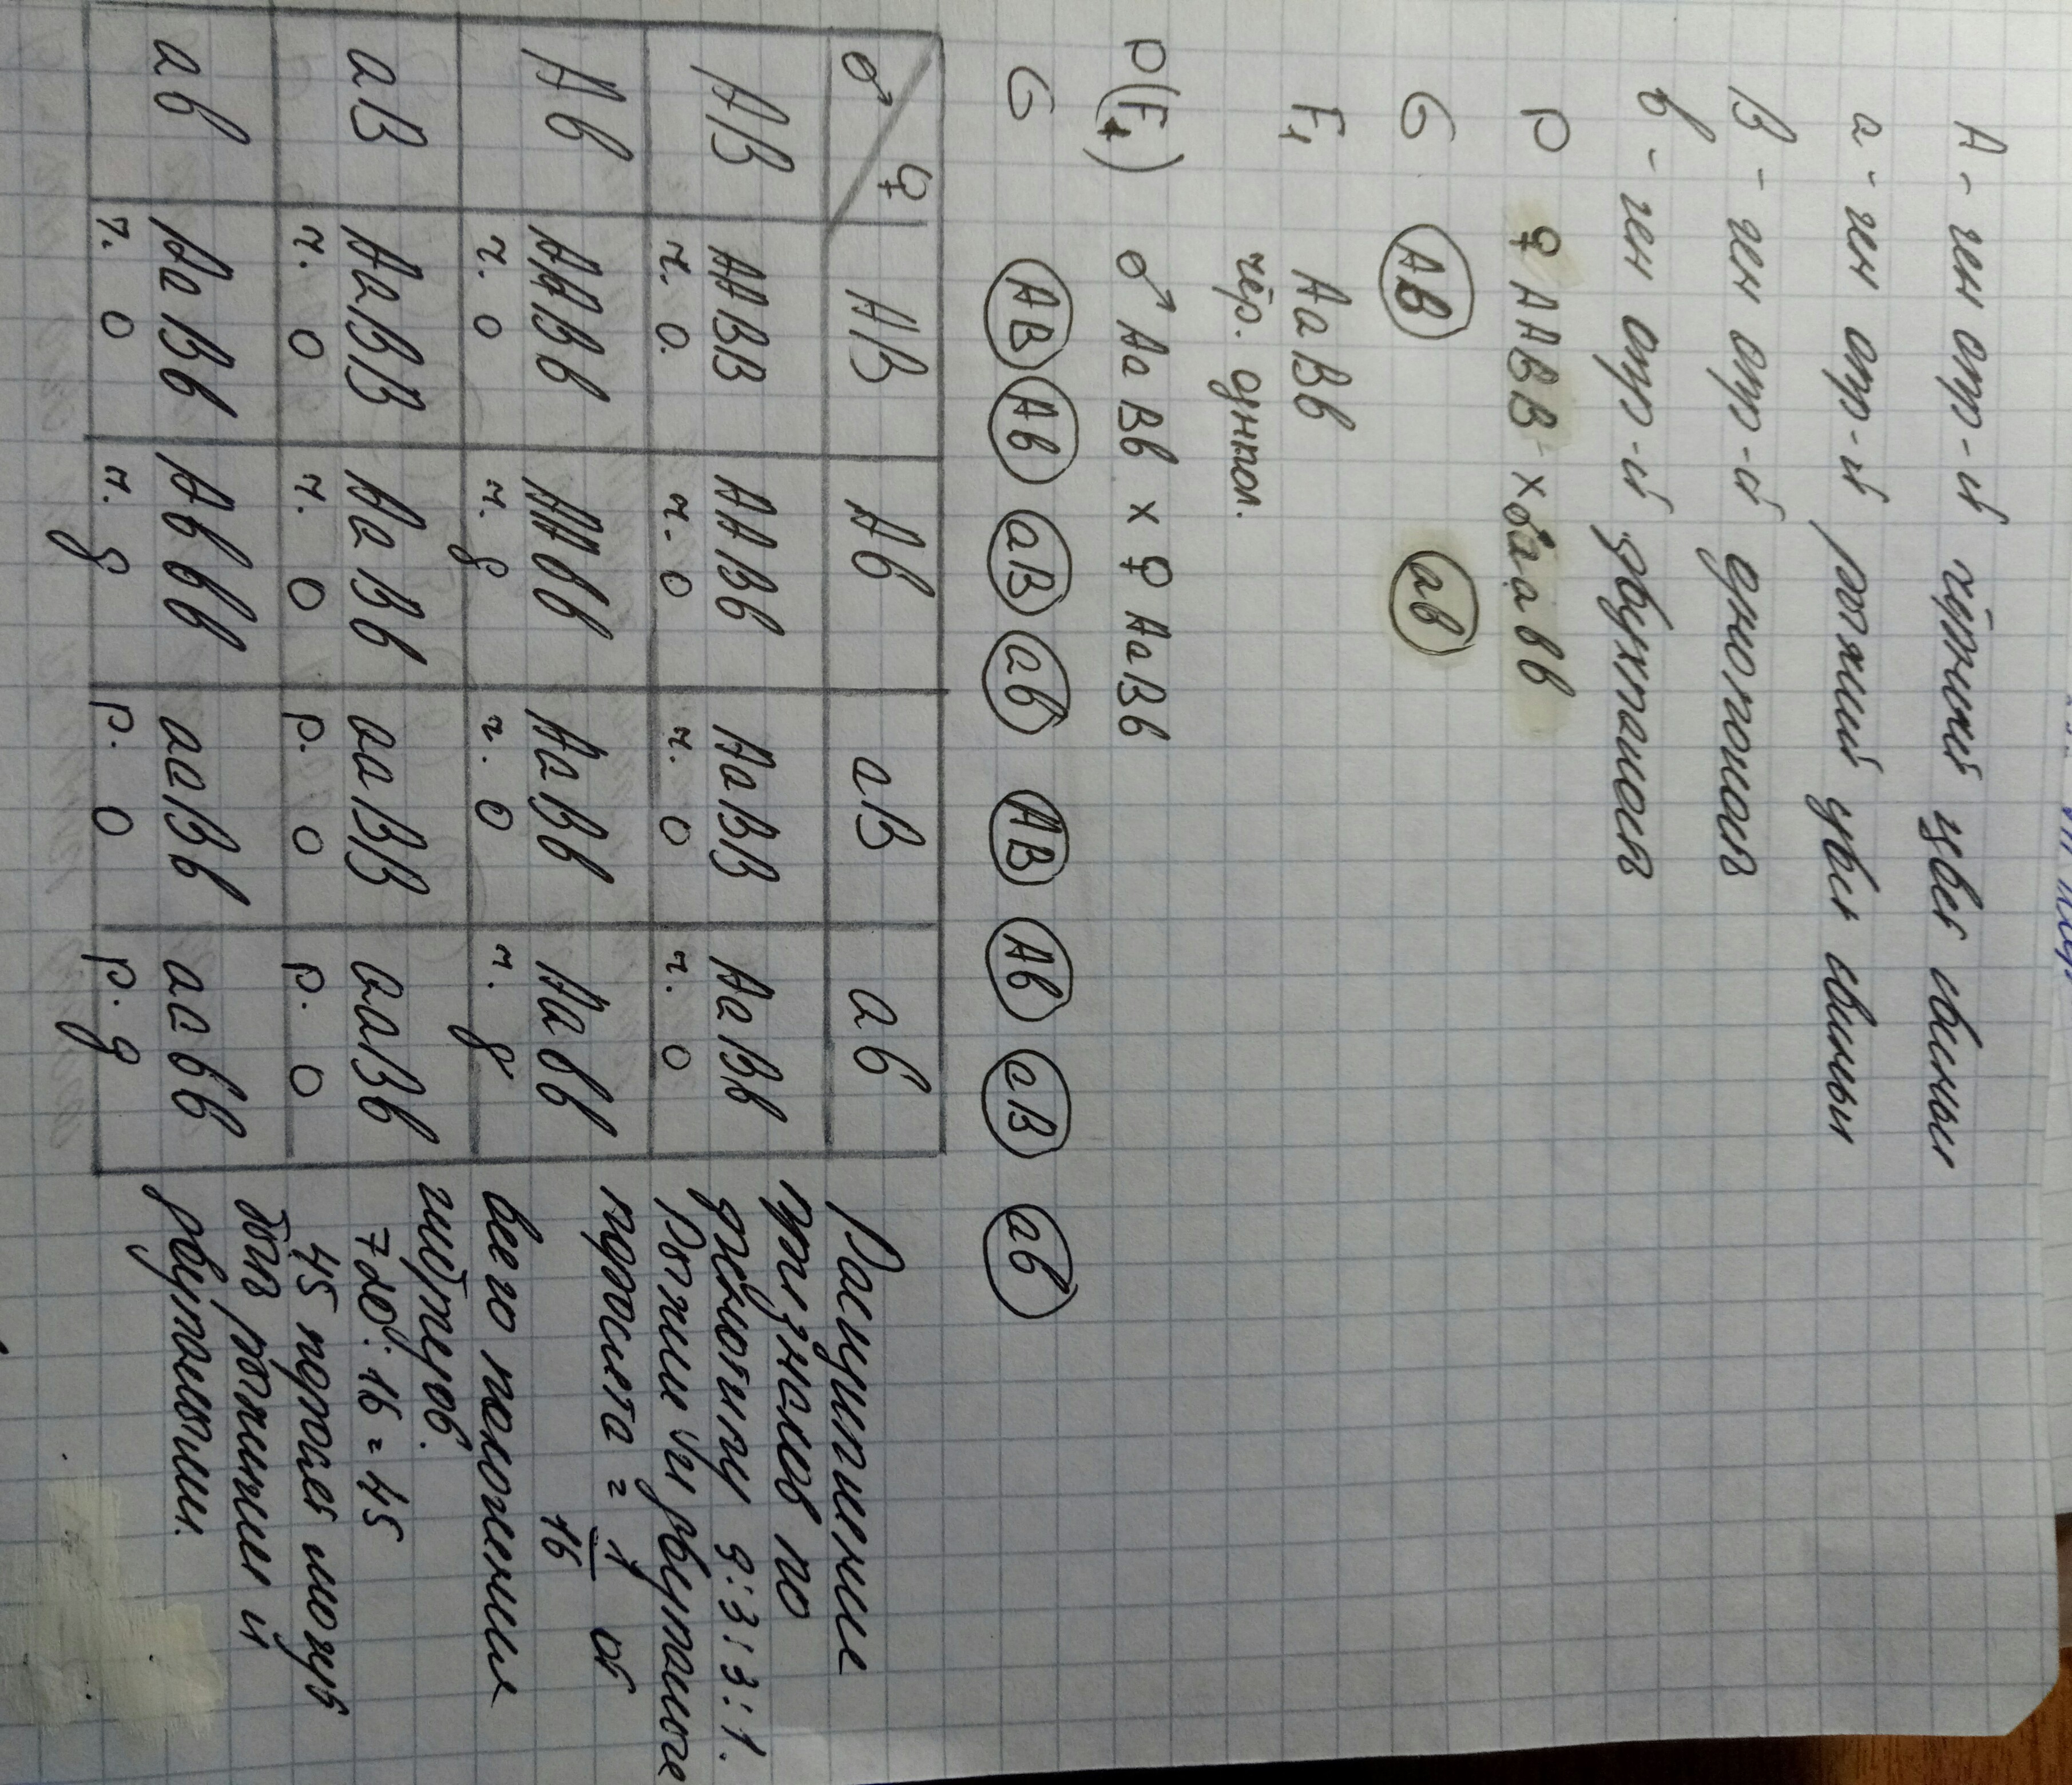 А - ген отр-й чёрный цвет свиньи
а - ген отр-й рыжий цвет свиньи
В - ген отр-й однопалось
в - ген отр-й двупалось
Р ♀ ААВВ × ♂ аавв
G АВ ав
F₁ АаВв
чёр. однпол.
Р(F₁) ♂ АаВв × ♀ АаВв
G АВ Ав аВ ав АВ Ав аВ ав
♂ ♀ АВ Ав аВ ав
АВ ААВВ ААВв АаВВ АаВв
ч. о. ч. о ч. о ч. о
Ав ААВв ААвв АаВв Аавв
ч. о ч. д ч. о ч. д
аВ АаВВ АаВв ааВВ ааВв
ч. о ч. о р. о р. о
ав АаВв Аввв ааВв аавв
ч. о ч. д р. о р. д
Расщипление
признаков по
фенотипу 9:3:3:1.
Рыжие и двупалые
поросята = 1/16 от
всего поколения
гибридов.
720 : 16 = 45
45 поросят могут
быть рыжими и
двупалыми.